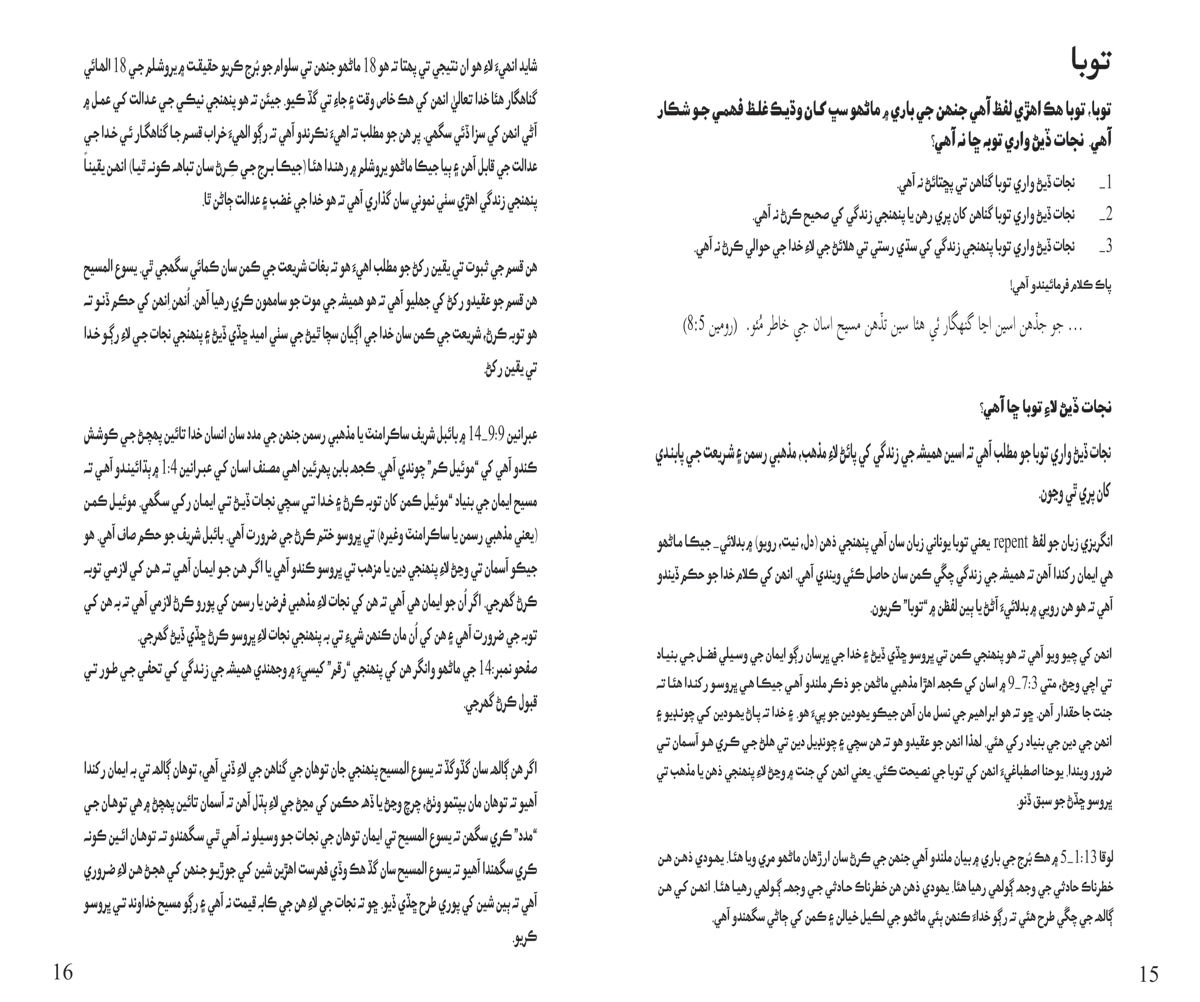 توبا
توبا، توبا هڪ اهڙي لفظ آهي جنهن جي باري ۾ ماڻهو سڀ کان وڌيڪ غلط فهمي جو شڪار
آهي. نجات ڏيڻ واري توبه ڇا نه آهي؟
1_ نجات ڏيڻ واري توبا گناهن تي پڇتائڻ نه آهي.
2_ نجات ڏيڻ واري توبا گناهن کان پري رهن يا پنهنجي زندگي کي صحيح ڪرڻ نه آهي.
3_ نجات ڏيڻ واري توبا پنهنجي زندگي کي سڌي رستي تي هلائڻ جي لاءِ خدا جي حوالي ڪرڻ نه آهي.
پاڪ ڪلام فرمائيندو آهي!
... جو جڏهن اسين اڃا گنهگار ئي هئا سين تڏهن مسيح اسان جي خاطر مُئو. (رومين 8:5)
نجات ڏيڻ لاءِ توبا ڇا آهي؟
نجات ڏيڻ واري توبا جو مطلب آهي ته اسين هميشه جي زندگي کي پائڻ لاءِ مذهب، مذهبي رسمن ۽ شريعت جي پابندي
کان پري ٿي وڃون.
انگريزي زبان جو لفظ repent يعني توبا يوناني زبان سان آهي پنهنجي ذهن (دل، نيت، رويو) ۾ بدلائي_ جيڪا ماڻهو
هي ايمان رکندا آهن ته هميشه جي زندگي چڱي ڪمن سان حاصل ڪئي ويندي آهي. انهن کي ڪلام خدا جو حڪم ڏيندو
آهي ته هو هن رويي ۾ بدلائيءَ آڻڻ يا ٻين لفظن ۾ “توبا” ڪريون.
انهن کي چيو ويو آهي ته هو پنهنجي ڪمن تي ڀروسو ڇڏي ڏيڻ ۽ خدا جي ڀرسان رڳو ايمان جي وسيلي فضل جي بنياد
تي اچي وڃن، متي 7:3_9 ۾ اسان کي ڪجهه اهڙا مذهبي ماڻهن جو ذڪر ملندو آهي جيڪا هي ڀروسو رکندا هئا ته
جنت جا حقدار آهن. ڇو ته هو ابراهيم جي نسل مان آهن جيڪو يهودين جو پيءَ هو. ۽ خدا ته پاڻ يهودين کي چونڊيو ۽
انهن جي دين جي بنياد رکي هئي. لهذا انهن جو عقيدو هو ته هن سچي ۽ چونڊيل دين تي هلڻ جي ڪري هو آسمان تي
ضرور ويندا. يوحنا اصطباغيءَ انهن کي توبا جي نصيحت ڪئي. يعني انهن کي جنت ۾ وڃڻ لاءِ پنهنجي ذهن يا مذهب تي
ڀروسو ڇڏڻ جو سبق ڏنو.
لوقا 1:13_5 ۾ هڪ بُرج جي باري ۾ بيان ملندو آهي جنهن جي ڪرڻ سان ارڙهان ماڻهو مري ويا هئا. يهودي ذهن هن
خطرناڪ حادثي جي وجهه ڳولهي رهيا هئا. يهودي ذهن هن خطرناڪ حادثي جي وجهه ڳولهي رهيا هئا. انهن کي هن
ڳالهه جي چڱي طرح هئي ته رڳو خداءَ ڪنهن ٻئي ماڻهو جي لڪيل خيالن ۽ ڪمن کي ڄاڻي سگهندو آهي.
15
شايد انهيءَ لاءِ هو ان نتيجي تي پهتا ته هو 18 ماڻهو جنهن تي سلوام جو بُرج ڪريو حقيقت ۾ يروشلم جي 18 الهائي
گناهگار هئا خدا تعاليٰ انهن کي هڪ خاص وقت ۽ جاءِ تي گڏ ڪيو. جيئن ته هو پنهنجي نيڪي جي عدالت کي عمل ۾
آڻي انهن کي سزا ڏئي سگهي. پر هن جو مطلب ته اهيءَ نڪرندو آهي ته رڳو الهيءَ خراب قسم جا گناهگار ئي خدا جي
عدالت جي قابل آهن ۽ ٻيا جيڪا ماڻهو يروشلم ۾ رهندا هئا (جيڪا برج جي ڪِرڻ سان تباهه ڪونه ٿيا) انهن يقيناً
پنهنجي زندگي اهڙي سٺي نموني سان گذاري آهي ته هو خدا جي غضب ۽ عدالت ڄاڻن ٿا.
هن قسم جي ثبوت تي يقين رکڻ جو مطلب اهيءَ هو ته بغات شريعت جي ڪمن سان ڪمائي سگهجي ٿي. يسوع المسيح
هن قسم جو عقيدو رکڻ کي جهليو آهي ته هو هميشه جي موت جو سامهون ڪري رهيا آهن. اُنهن انهن کي حڪم ڏنو ته
هو توبه ڪرڻ، شريعت جي ڪمن سان خدا جي اڳيان سچا ٿيڻ جي سٺي اميد ڇڏي ڏيڻ ۽ پنهنجي نجات جي لاءِ رڳو خدا
تي يقين رکڻ.
عبرانين 9:9_14 ۾ بائبل شريف ساڪرامنٽ يا مذهبي رسمن جنهن جي مدد سان انسان خدا تائين پهچڻ جي ڪوشش
ڪندو آهي کي “موئيل ڪم” چوندي آهي. ڪجهه بابن پهرئين اهي مصنف اسان کي عبرانين 1:4 ۾ ٻڌائيندو آهي ته
مسيح ايمان جي بنياد “موئيل ڪمن کان توبه ڪرڻ ۽ خدا تي سچي نجات ڏيڻ تي ايمان رکي سگهي. موئيل ڪمن
(يعني مذهبي رسمن يا ساڪرامنٽ وغيره) تي ڀروسو ختم ڪرڻ جي ضرورت آهي. بائبل شريف جو حڪم صاف آهي. هو
جيڪو آسمان تي وڃڻ لاءِ پنهنجي دين يا مزهب تي ڀروسو ڪندو آهي يا اگر هن جو ايمان آهي ته هن کي لازمي توبه
ڪرڻ گهرجي. اگر اُن جو ايمان هي آهي ته هن کي نجات لاءِ مذهبي فرض يا رسمن کي پورو ڪرڻ لازمي آهي ته به هن کي
توبه جي ضرورت آهي ۽ هن کي اُن مان ڪنهن شيءِ تي به پنهنجي نجات لاءِ ڀروسو ڪرڻ ڇڏي ڏيڻ گهرجي.
صفحو نمبر:14 جي ماڻهو وانگر هن کي پنهنجي “رقم” کيسيءَ ۾ وجهندي هميشه جي زندگي کي تحفي جي طور تي
قبول ڪرڻ گهرجي.
اگر هن ڳالهه سان گڏوگڏ ته يسوع المسيح پنهنجي جان توهان جي گناهن جي لاءِ ڏني آهي، توهان ڳالهه تي به ايمان رکندا
آهيو ته توهان مان بپتمو وٺڻ، چرچ وڃڻ يا ڏهه حڪمن کي مڃڻ جي لاءِ ٻڌل آهن ته آسمان تائين پهچڻ ۾ هي توهان جي
“مدد” ڪري سگهن ته يسوع المسيح تي ايمان توهان جي نجات جو وسيلو نه آهي ٿي سگهندو ته توهان ائين ڪونه
ڪري سگهندا آهيو ته يسوع المسيح سان گڏ هڪ وڏي فهرست اهڙين شين کي جوڙيو جنهن کي هجڻ هن لاءِ ضروري
آهي ته ٻين شين کي پوري طرح ڇڏي ڏيو. ڇو ته نجات جي لاءِ هن جي ڪابه قيمت نه آهي ۽ رڳو مسيح خداوند تي ڀروسو
ڪريو.
16